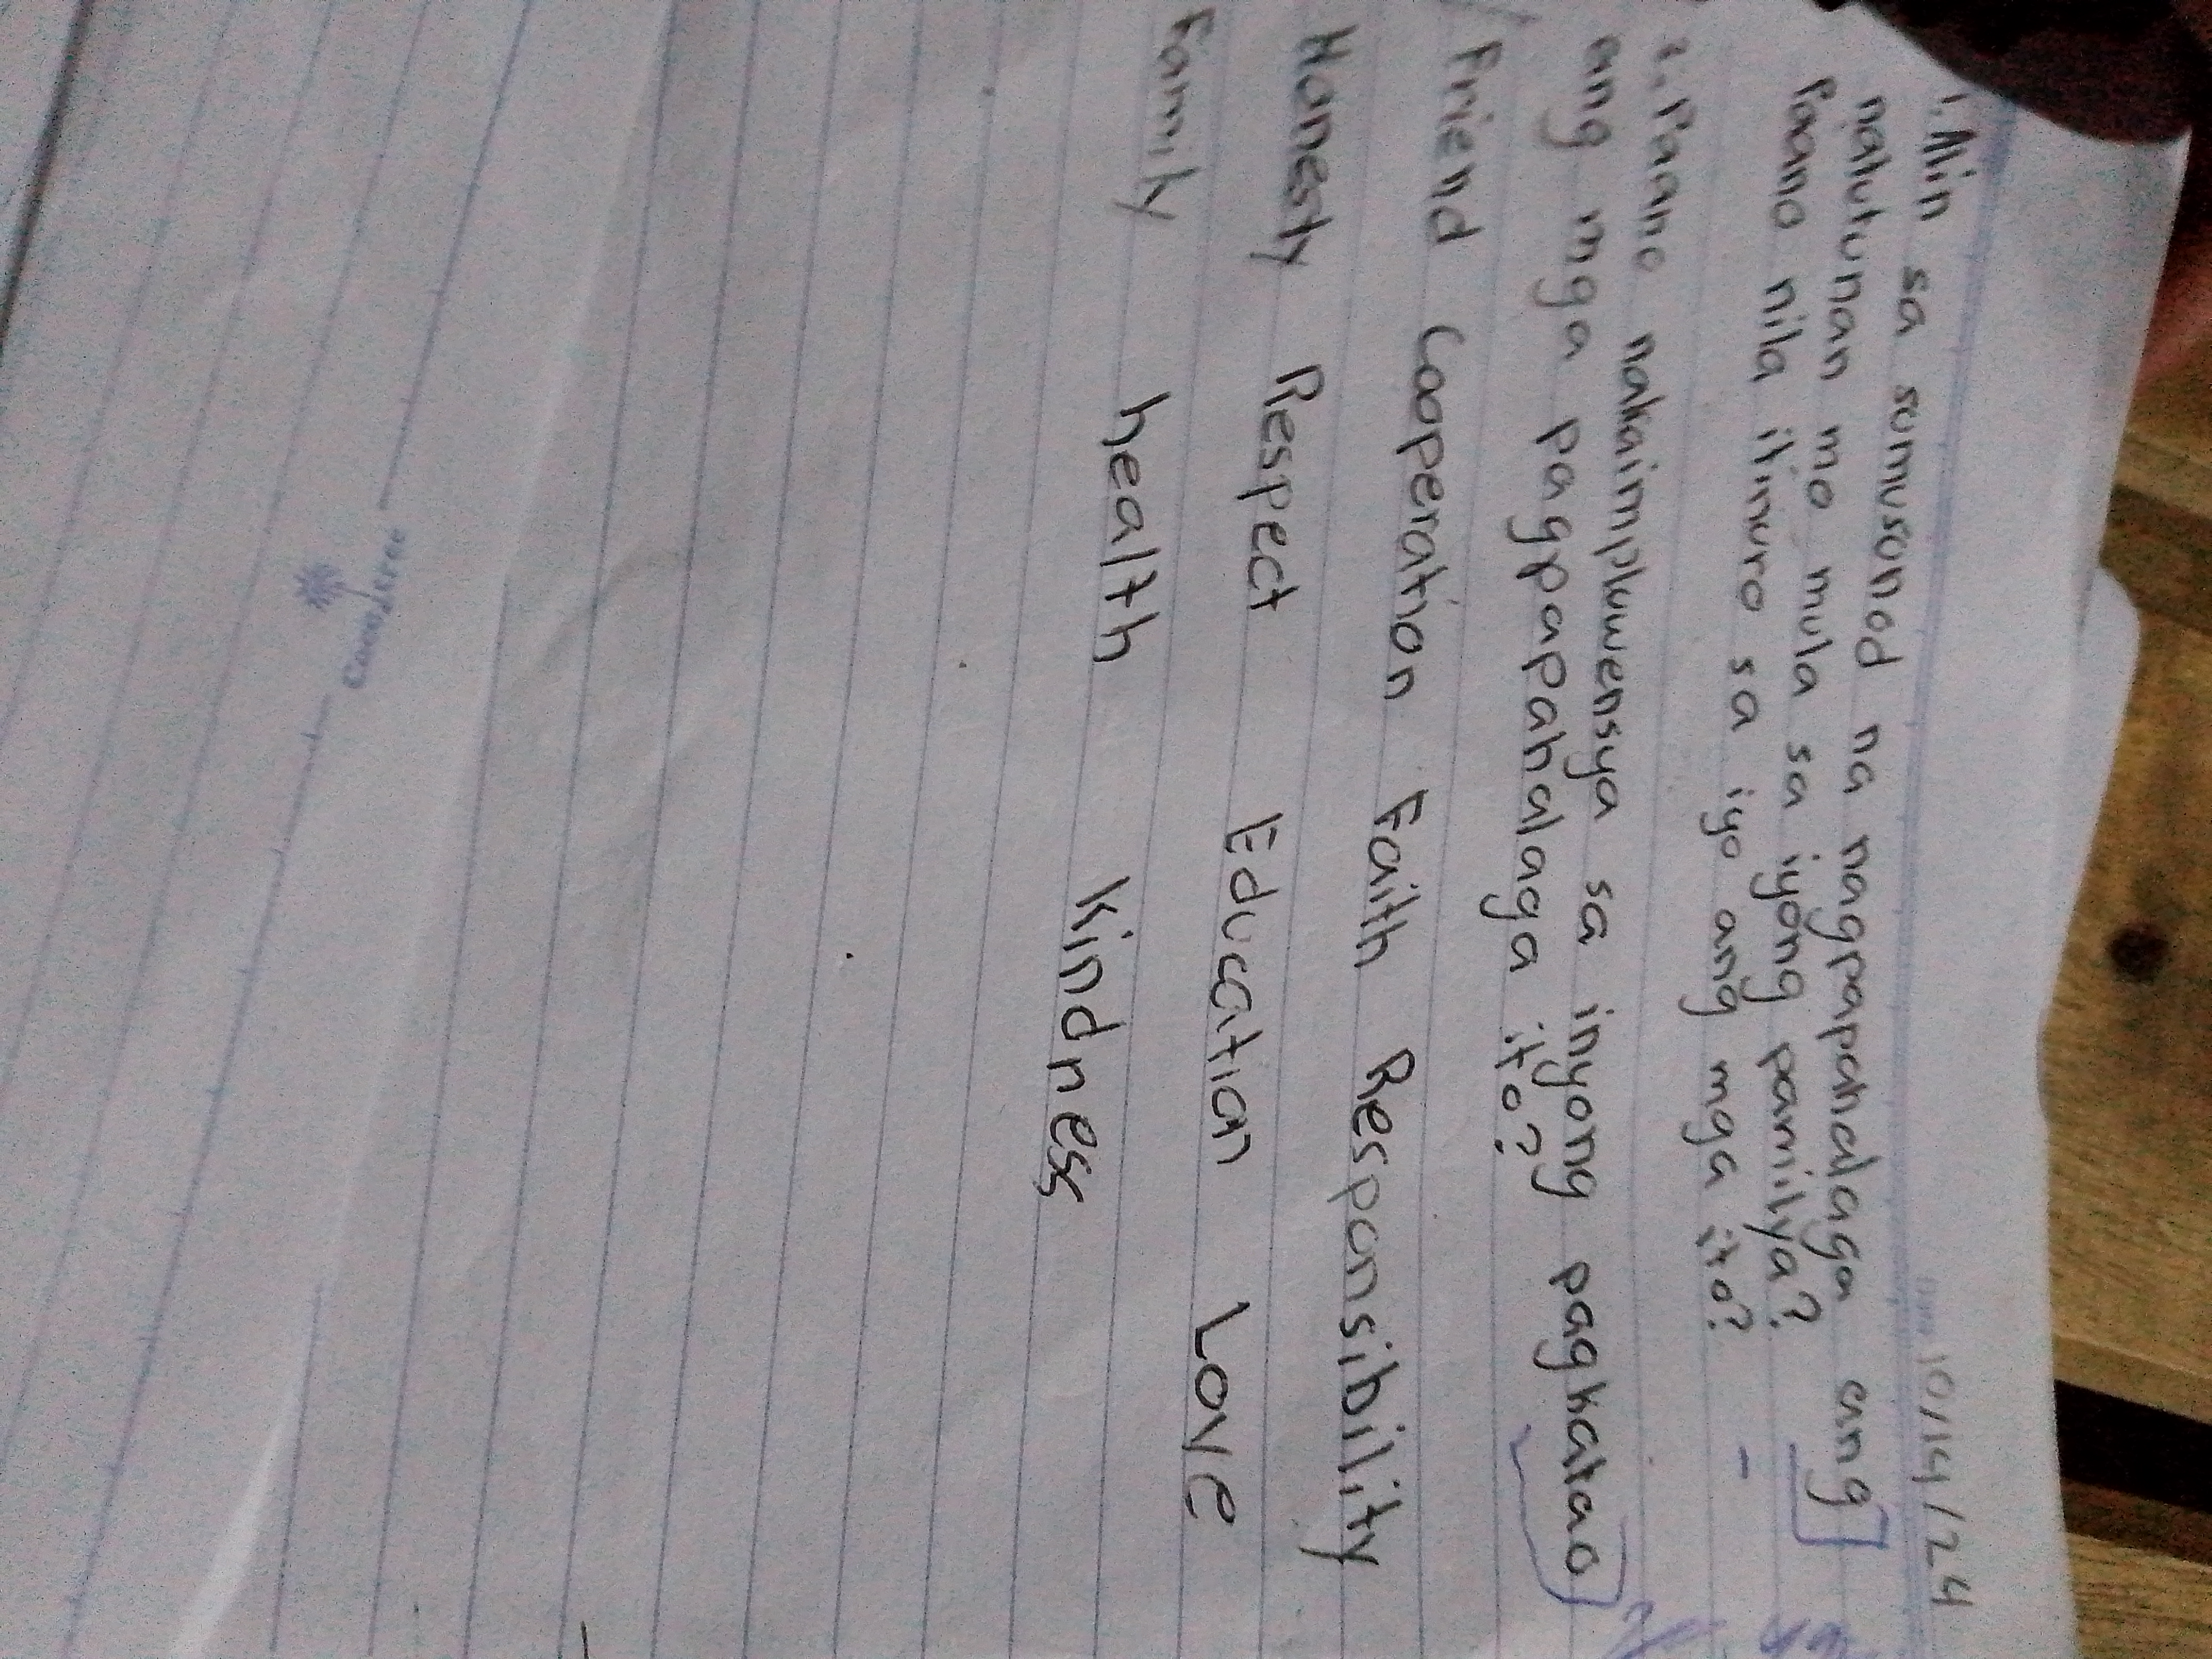 10/14/24
1. Alin sa sumusunod na nagpapahalaga ang
natutunan mo mula sa iyong pamilya?
Paano nila itinuro sa iyo ang mga ito?
2. Paano nakaimpluwensya sa inyong pagkatao
ang mga pagpapahalaga ito?
Friend Cooperation Faith Responsibility
Honesty Respect Education Love
Family health Kindness